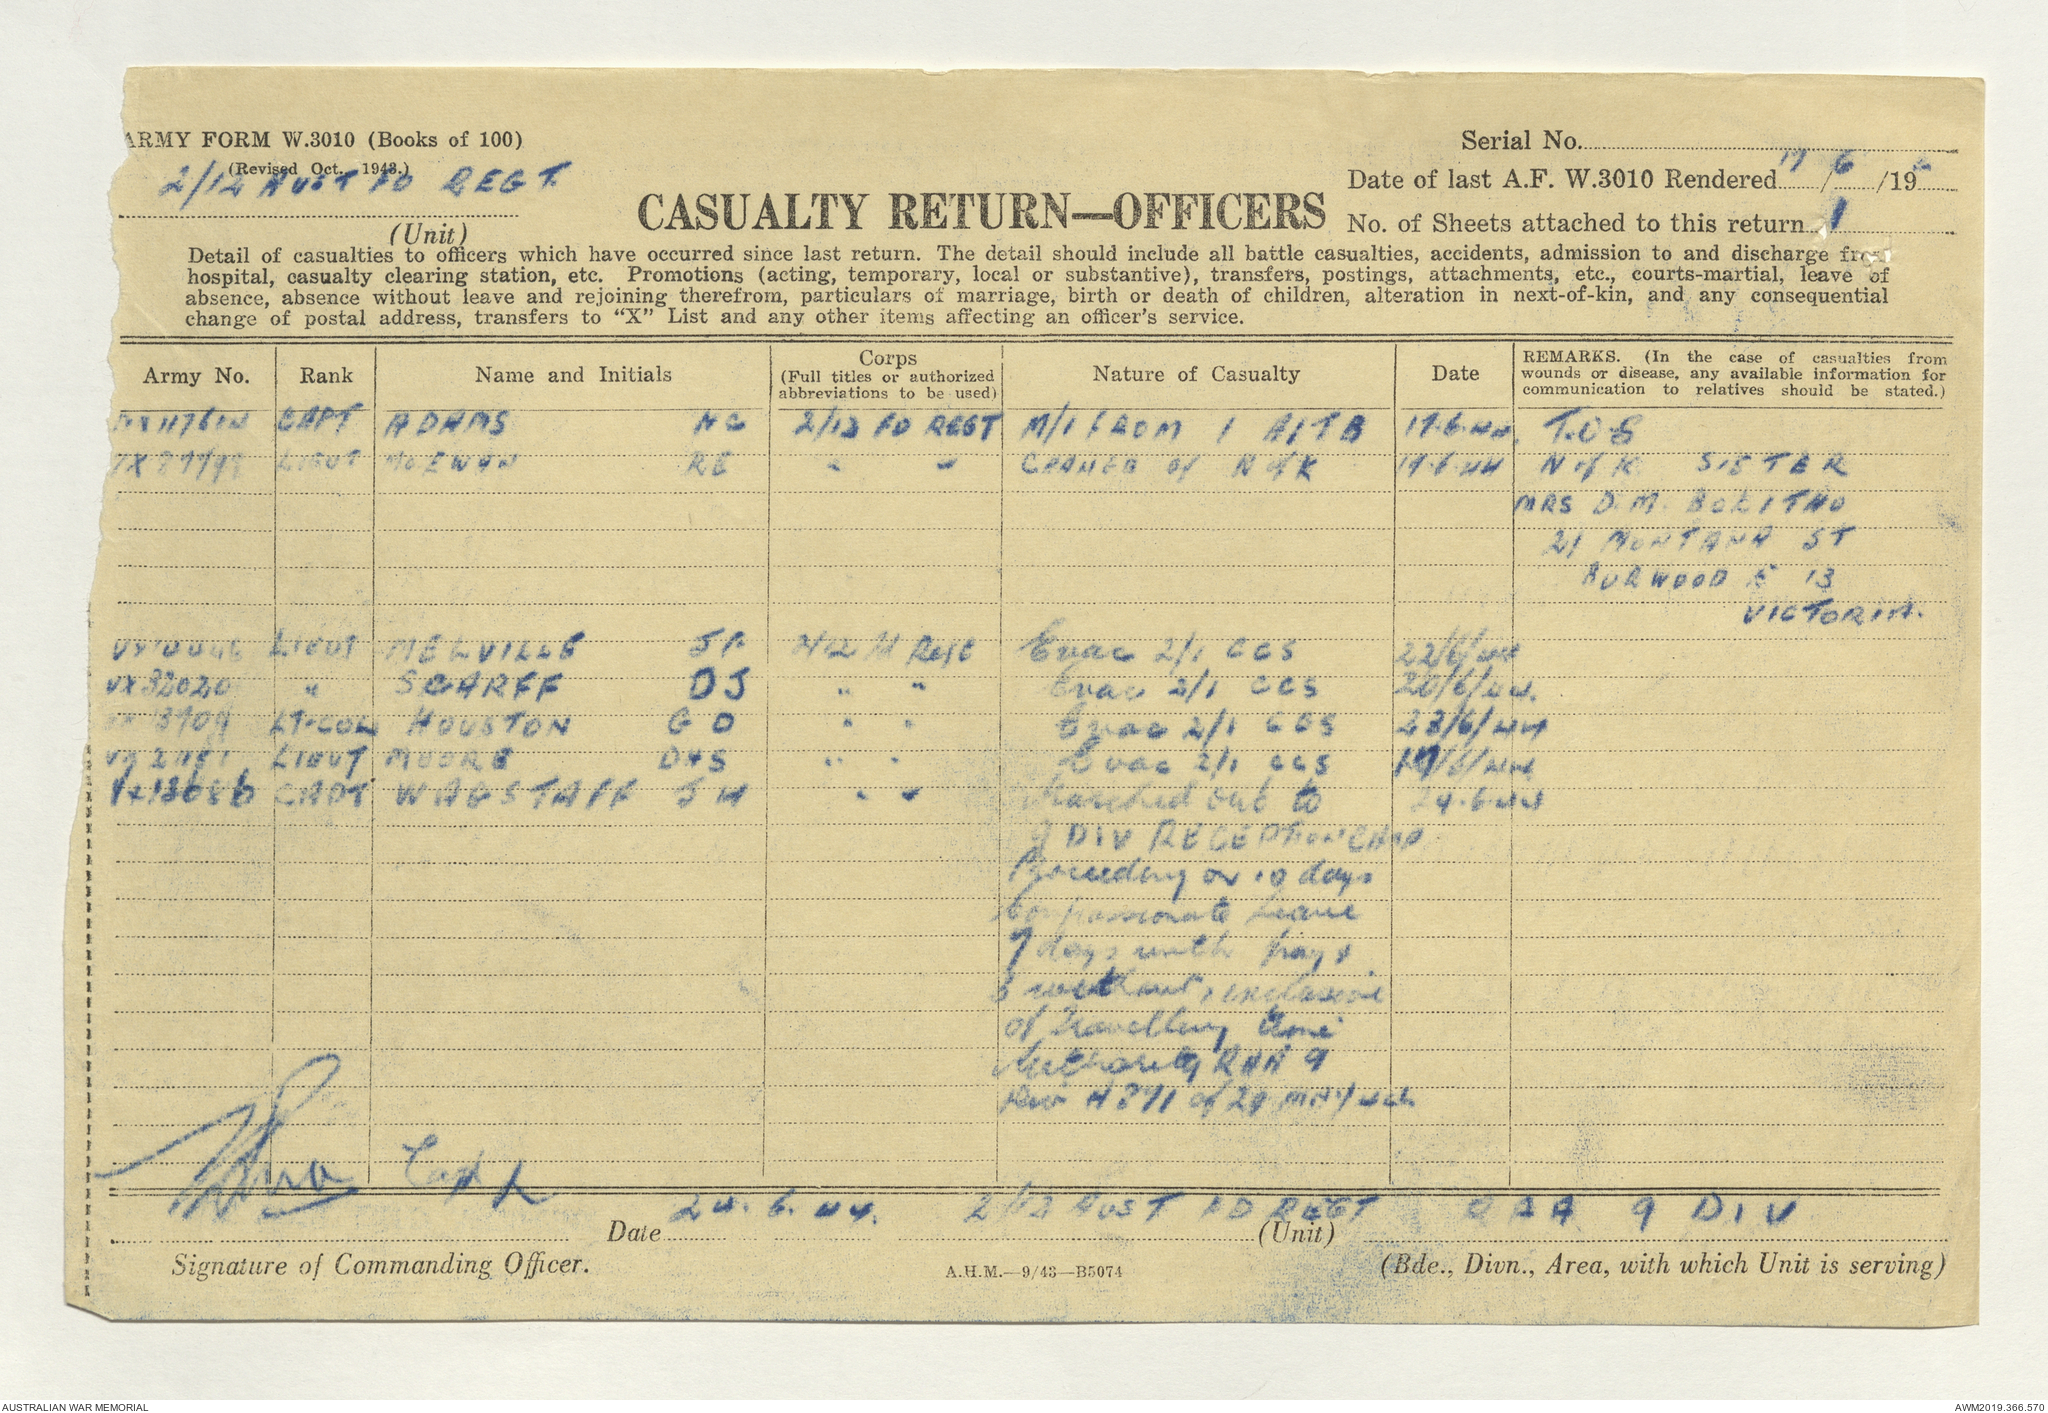 ARMY FORM W.3010 (Books of 100)
(Revised Oct. 1943.)
2/12 AUST FD REGT.
(Unit)
CASUALTY RETURN—OFFICERS
Serial No.
Date of last A.F. W.3010 Rendered 17/6/19
No. of Sheets attached to this return 1
Detail of casualties to officers which have occurred since last return. The detail should include all battle casualties, accidents, admission to and discharge from
hospital, casualty clearing station, etc. Promotions (acting, temporary, local or substantive), transfers, postings, attachments, etc., courts-martial, leave of
absence, absence without leave and rejoining therefrom, particulars of marriage, birth or death of children, alteration in next-of-kin, and any consequential
change of postal address, transfers to "X" List and any other items affecting an officer's service.
Army No. Rank Name and Initials Corps (Full titles or authorized abbreviations to be used) Nature of Casualty Date REMARKS. (In the case of casualties from wounds or disease, any available information for communication to relatives should be stated.)
CAPT ADAMS 2/12 FD REGT M/I FROM 1 AITB 17.6.44. T.O.S
LIEUT McEWAN RE " " CHANGE of N of K 17.6.44 N of K SISTER
MRS D.M. BOLITHO
21 MONTANA ST
BURWOOD E 13
VICTORIA.
LIEUT MELVILLE 2/12 Fd Regt Evac 2/1 CCS 22/6/44
VX32020 " SCARFF DJ " " Evac 2/1 CCS 20/6/44.
LT-COL HOUSTON G D " " Evac 2/1 CCS 23/6/44
LIEUT MOORE DHS " " Evac 2/1 CCS 19/6/44
CAPT WAGSTAFF J H " " Marched out to 24.6.44
9 DIV RECEPTION CAMP
Proceeding on 10 days
Compassionate Leave
7 days with pay &
3 without, exclusive
of Travelling time
Authority RAA 9
Div A 871 of 29 MAY 44
Capt
Date 24.6.44. 2/12 AUST FD REGT (Unit) RAA 9 DIV
Signature of Commanding Officer.
A.H.M.—9/43—B5074
(Bde., Divn., Area, with which Unit is serving)
AUSTRALIAN WAR MEMORIAL
AWM2019.366.570